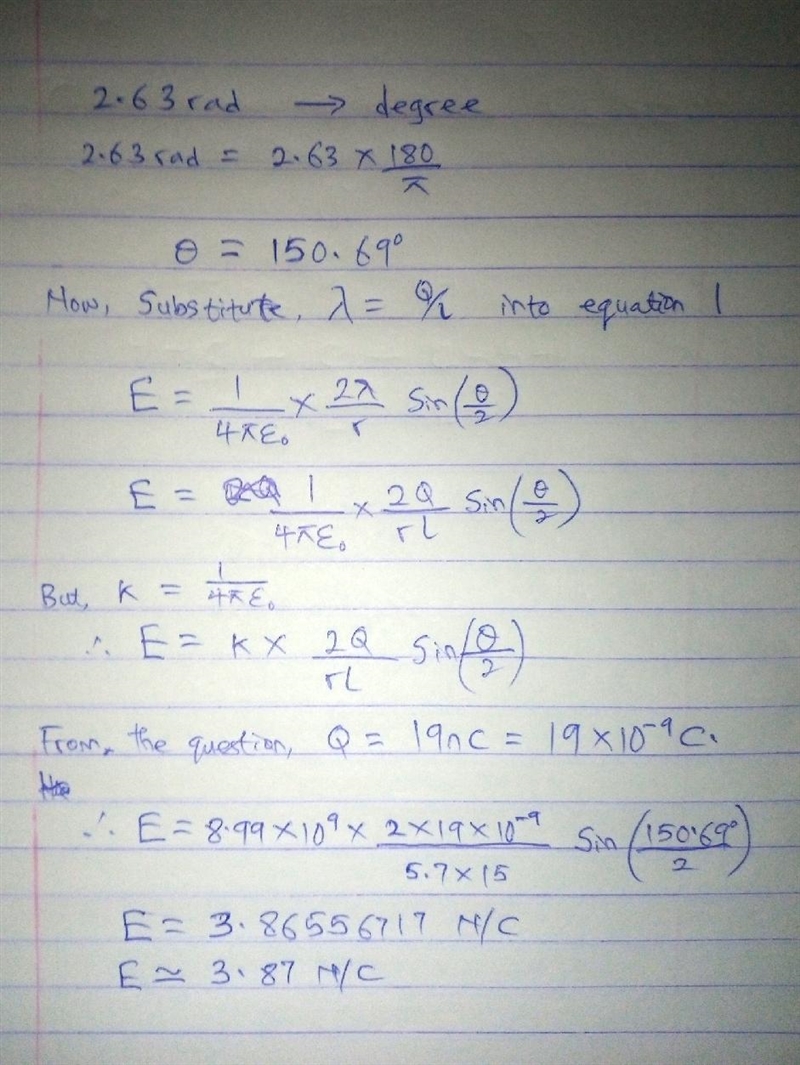 2.63 rad → degree
2.63 rad = 2.63 × 180/π
θ = 150.69°
Now, Substitute, λ = Q/L into equation 1
E = 1/4πε₀ × 2λ/r Sin(θ/2)
E = 1/4πε₀ × 2Q/rL Sin(θ/2)
But, K = 1/4πε₀
∴ E = K × 2Q/rL Sin(θ/2)
From, the question, Q = 19nC = 19 × 10⁻⁹ C.
∴ E = 8.99 × 10⁹ × 2 × 19 × 10⁻⁹/5.7 × 15 Sin(150.69°/2)
E = 3.86556717 N/C
E ≃ 3.87 N/C